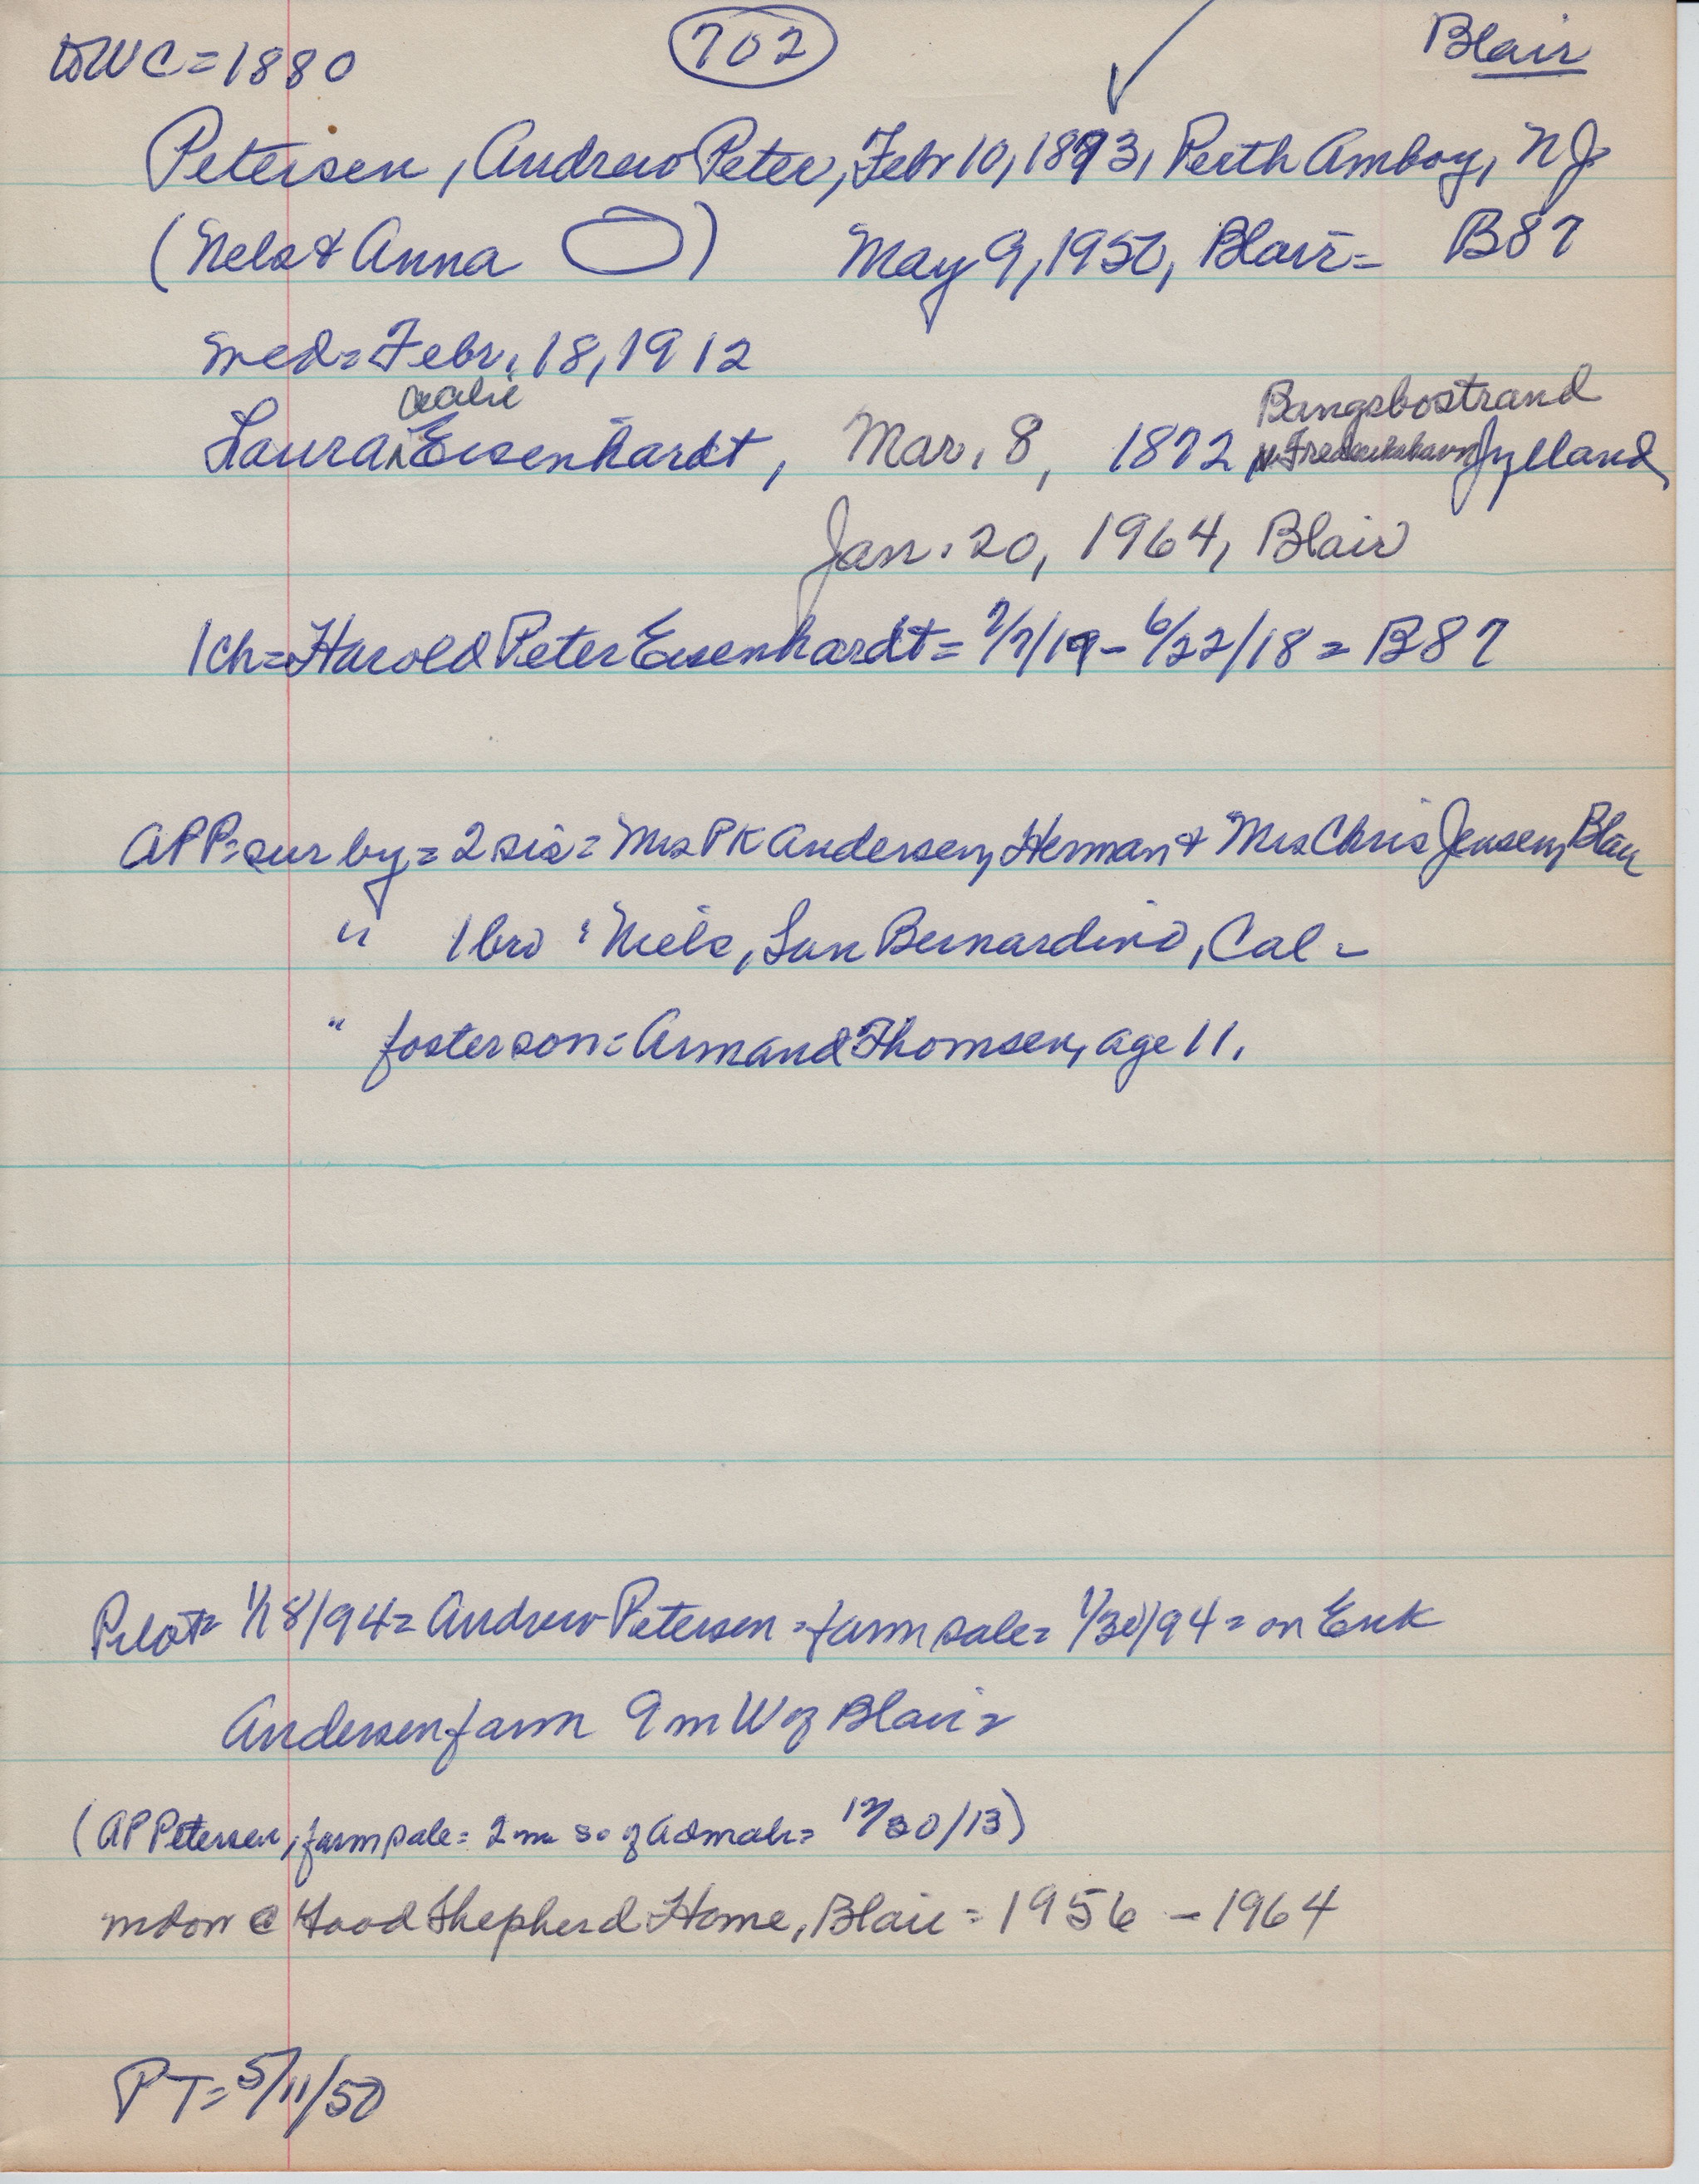 WC=1880 702 Blair
Petersen, Andrew Peter, Febr 10, 1873, Perth Amboy, NJ
(Nels & Anna ) May 9, 1950, Blair= B87
med= Febr. 18, 1912
Bangsbostrand
Laura Eisenhardt, Mar. 8, 1872 Frederikshavn Jylland
Jan. 20, 1964, Blair
1ch=Harold Peter Eisenhardt= /7/19- 6/22/18 = B87
APP=sur by= 2 sis= Mrs PK Andersen, Herman & Mrs Chris Jensen, Blair
" 1 bro = Niels, San Bernardino, Cal=
" foster son= Armand Thomsen, age 11.
Pilot= 1/18/94= Andrew Petersen =farm sale= 1/30/94= on Erik
Andersen farm 9 m W of Blair=
(AP Petersen, farm sale= 2 m so of Admah= 12/30/13)
@ Good Shepherd Home, Blair = 1956 - 1964
PT= 5/11/50